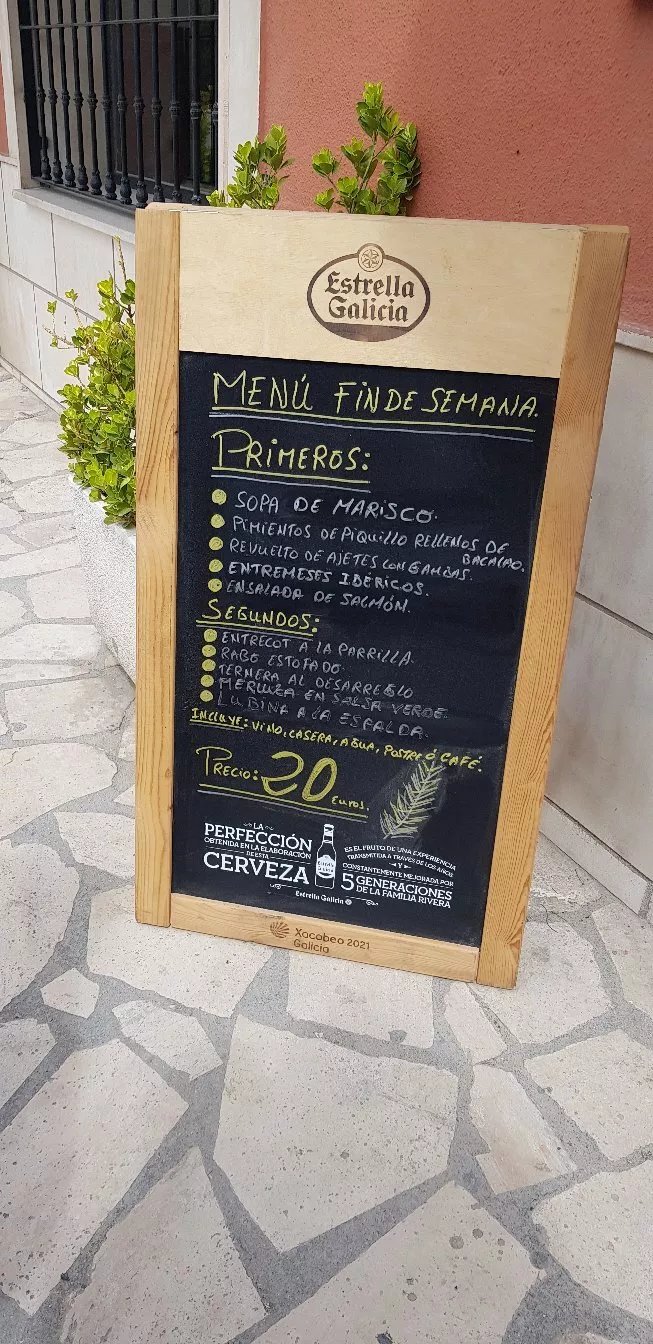 Estrella
Galicia
MENÚ FIN DE SEMANA.
PRIMEROS:
SOPA DE MARISCO.
PIMIENTOS DE PIQUILLO RELLENOS DE
BACALAO.
REVUELTO DE AJETES CON GAMBAS.
ENTREMESES IBÉRICOS.
ENSALADA DE SALMÓN.
SEGUNDOS:
ENTRECOT A LA PARRILLA.
RABO ESTOFADO.
TERNERA AL DESARREGLO
MERLUZA EN SALSA VERDE.
LUBINA A LA ESPALDA.
INCLUYE: VINO, CASERA, AGUA, POSTRE Ó CAFÉ.
PRECIO: 20 EUROS.
LA
PERFECCIÓN
OBTENIDA EN LA ELABORACIÓN
DE ESTA
CERVEZA
ES EL FRUTO DE UNA EXPERIENCIA
TRANSMITIDA A TRAVÉS DE LOS AÑOS
Y
CONSTANTEMENTE MEJORADA POR
5 GENERACIONES
DE LA FAMILIA RIVERA
Estrella Galicia
Xacobeo 2021
Galicia